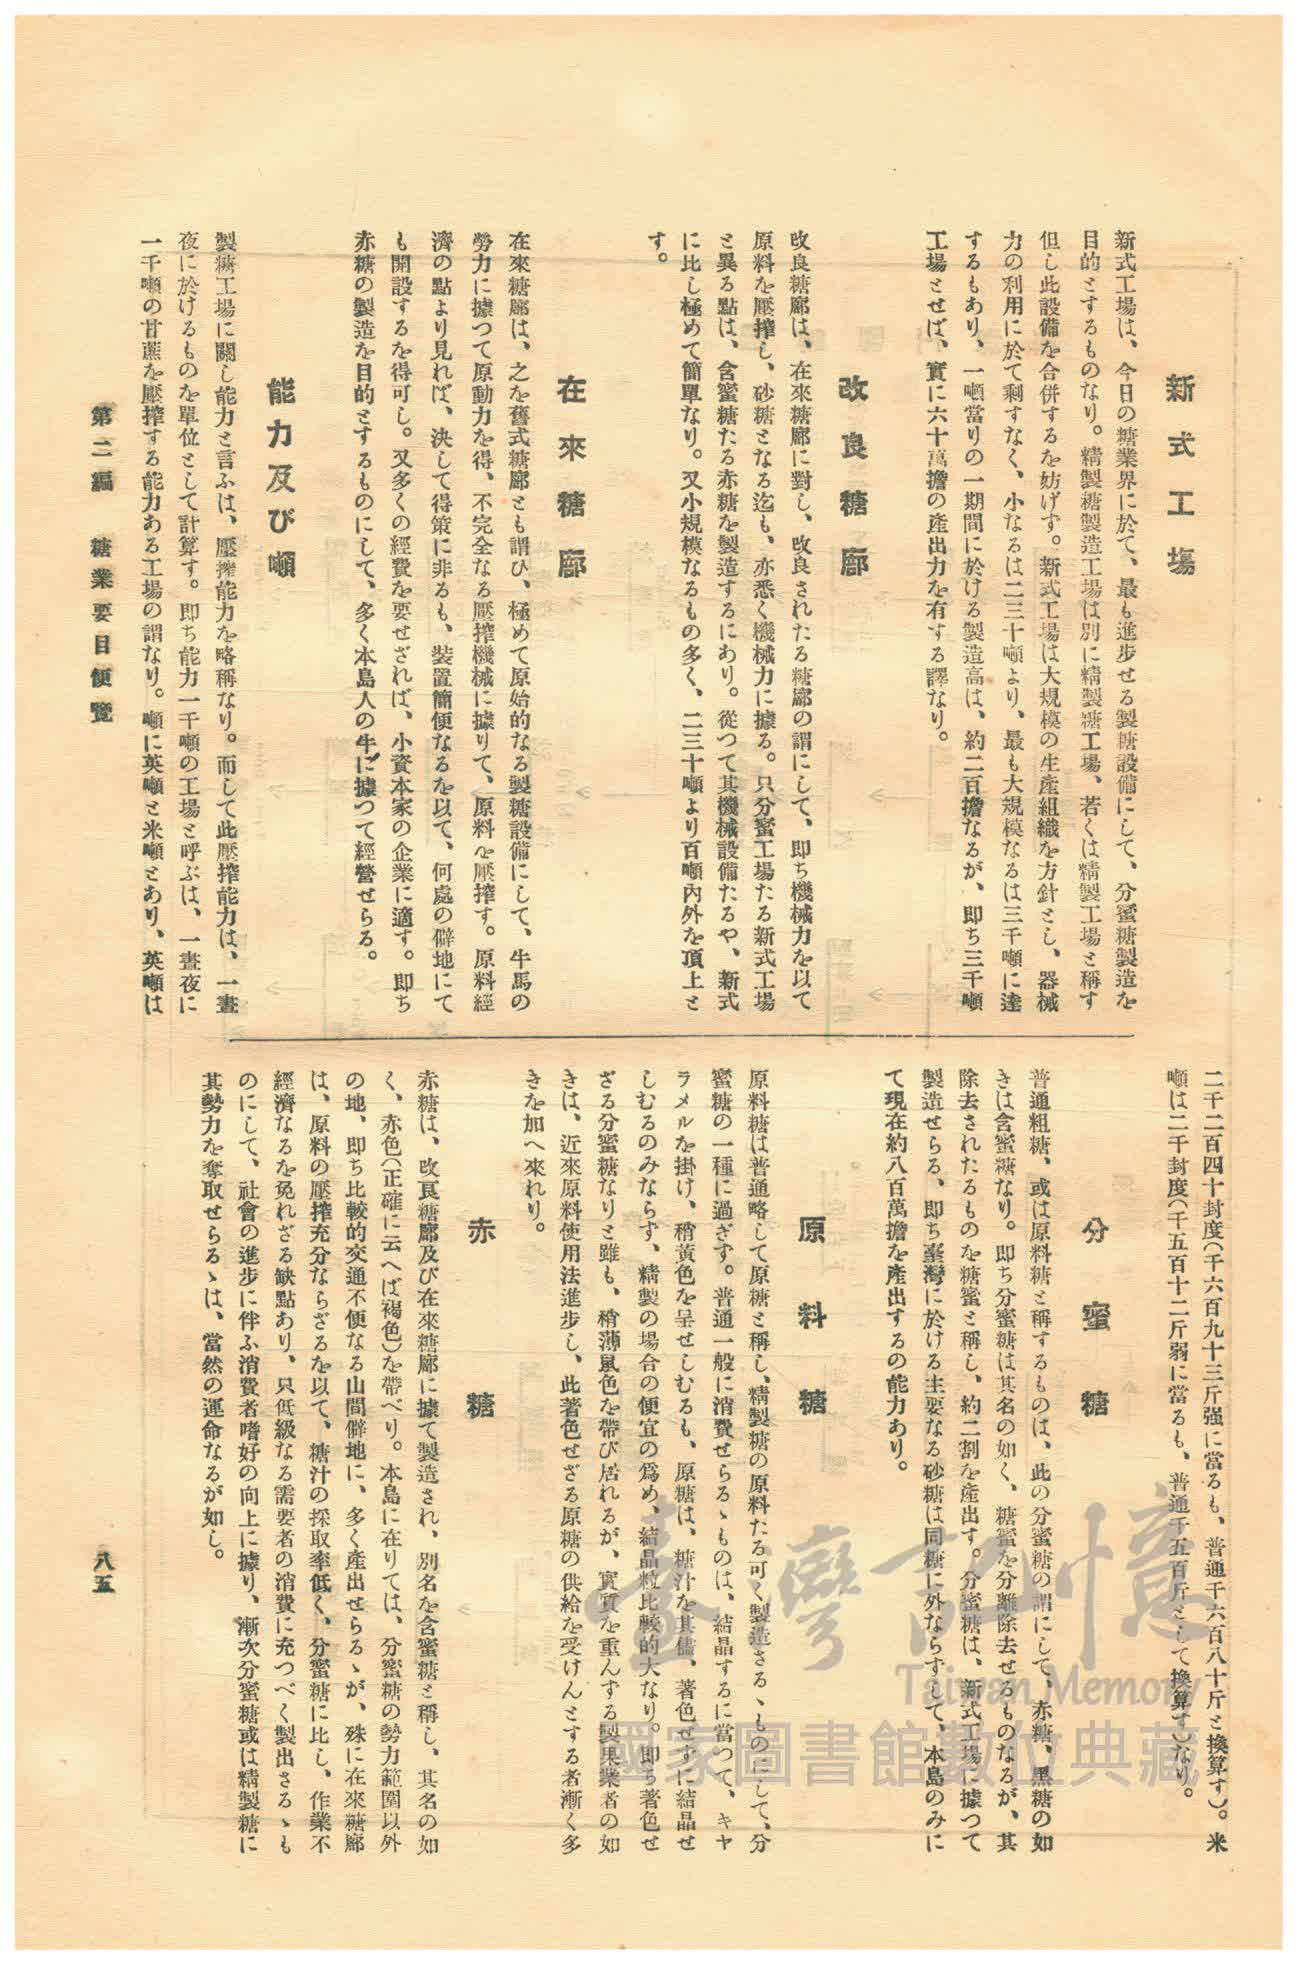 新式工場
新式工場は、今日の糖業界に於て、最も進步せる製糖設備にして、分蜜糖製造を
目的とするものなり。精製糖製造工場は別に精製糖工場、若くは精製工場と稱す
但し此設備を合併するを妨げず。新式工場は大規模の生產組織を方針とし、器械
力の利用に於て剩すなく、小なるは二三十噸より、最も大規模なるは三千噸に達
するもあり、一噸當りの一期間に於ける製造高は、約二百擔なるが、即ち三千噸
工場とせば、實に六十萬擔の產出力を有する譯なり。
改良糖廍
改良糖廍は、在來糖廍に對し、改良されたる糖廍の謂にして、即ち機械力を以て
原料を壓搾し、砂糖となる迄も、亦悉く機械力に據る。只分蜜工場たる新式工場
と異る點は、含蜜糖たる赤糖を製造するにあり。從つて其機械設備たるや、新式
に比し極めて簡單なり。又小規模なるもの多く、二三十噸より百噸內外を頂上と
す。
在來糖廍
在來糖廍は、之を舊式糖廍とも謂ひ、極めて原始的なる製糖設備にして、牛馬の
勞力に據つて原動力を得、不完全なる壓搾機械に據りて、原料を壓搾す。原料經
濟の點より見れば、決して得策に非るも、裝置簡便なるを以て、何處の僻地にて
も開設するを得可し。又多くの經費を要せざれば、小資本家の企業に適す。即ち
赤糖の製造を目的とするものにして、多く本島人の牛に據つて經營せらる。
能力及び噸
製糖工場に關し能力と言ふは、壓搾能力を略稱なり。而して此壓搾能力は、一晝
夜に於けるものを單位として計算す。即ち能力一千噸の工場と呼ぶは、一晝夜に
一千噸の甘蔗を壓搾する能力ある工場の謂なり。噸に英噸と米噸とあり、英噸は
二千二百四十封度(千六百九十三斤强に當るも、普通千六百八十斤と換算す)。米
噸は二千封度(千五百十二斤弱に當るも、普通千五百斤として換算す)なり。
分蜜糖
普通粗糖、或は原料糖と稱するものは、此の分蜜糖の謂にして、赤糖、黑糖の如
きは含蜜糖なり。即ち分蜜糖は其名の如く、糖蜜を分離除去せるものなるが、其
除去されたるものを糖蜜と稱し、約二割を產出す。分蜜糖は、新式工場に據つて
製造せらる、即ち臺灣に於ける主要なる砂糖は同糖に外ならずして、本島のみに
て現在約八百萬擔を產出するの能力あり。
原料糖
原料糖は普通略して原糖と稱し、精製糖の原料たる可く製造さるゝものにして、分
蜜糖の一種に過ぎず。普通一般に消費せらるゝものは、結晶するに當つて、キヤ
ラメルを掛け、稍黃色を呈せしむるも、原糖は、糖汁を其儘、著色せずに結晶せ
しむるのみならず、精製の場合の便宜の爲め、結晶粒比較的大なり。即ち著色せ
ざる分蜜糖なりと雖も、稍薄鼠色を帶び居れるが、實質を重んずる製菓業者の如
きは、近來原料使用法進步し、此著色せざる原糖の供給を受けんとする者漸く多
きを加へ來れり。
赤糖
赤糖は、改良糖廍及び在來糖廍に據て製造され、別名を含蜜糖と稱し、其名の如
く、赤色(正確に云へば褐色)を帶べり。本島に在りては、分蜜糖の勢力範圍以外
の地、即ち比較的交通不便なる山間僻地に、多く產出せらるゝが、殊に在來糖廍
は、原料の壓搾充分ならざるを以て、糖汁の採取率低く、分蜜糖に比し、作業不
經濟なるを免れざる缺點あり、只低級なる需要者の消費に充つべく製出さるゝも
のにして、社會の進步に伴ふ消費者嗜好の向上に據り、漸次分蜜糖或は精製糖に
其勢力を奪取せらるゝは、當然の運命なるが如し。
第三編　糖業要目便覽
八五
臺灣記憶
Taiwan Memory
國家圖書館數位典藏